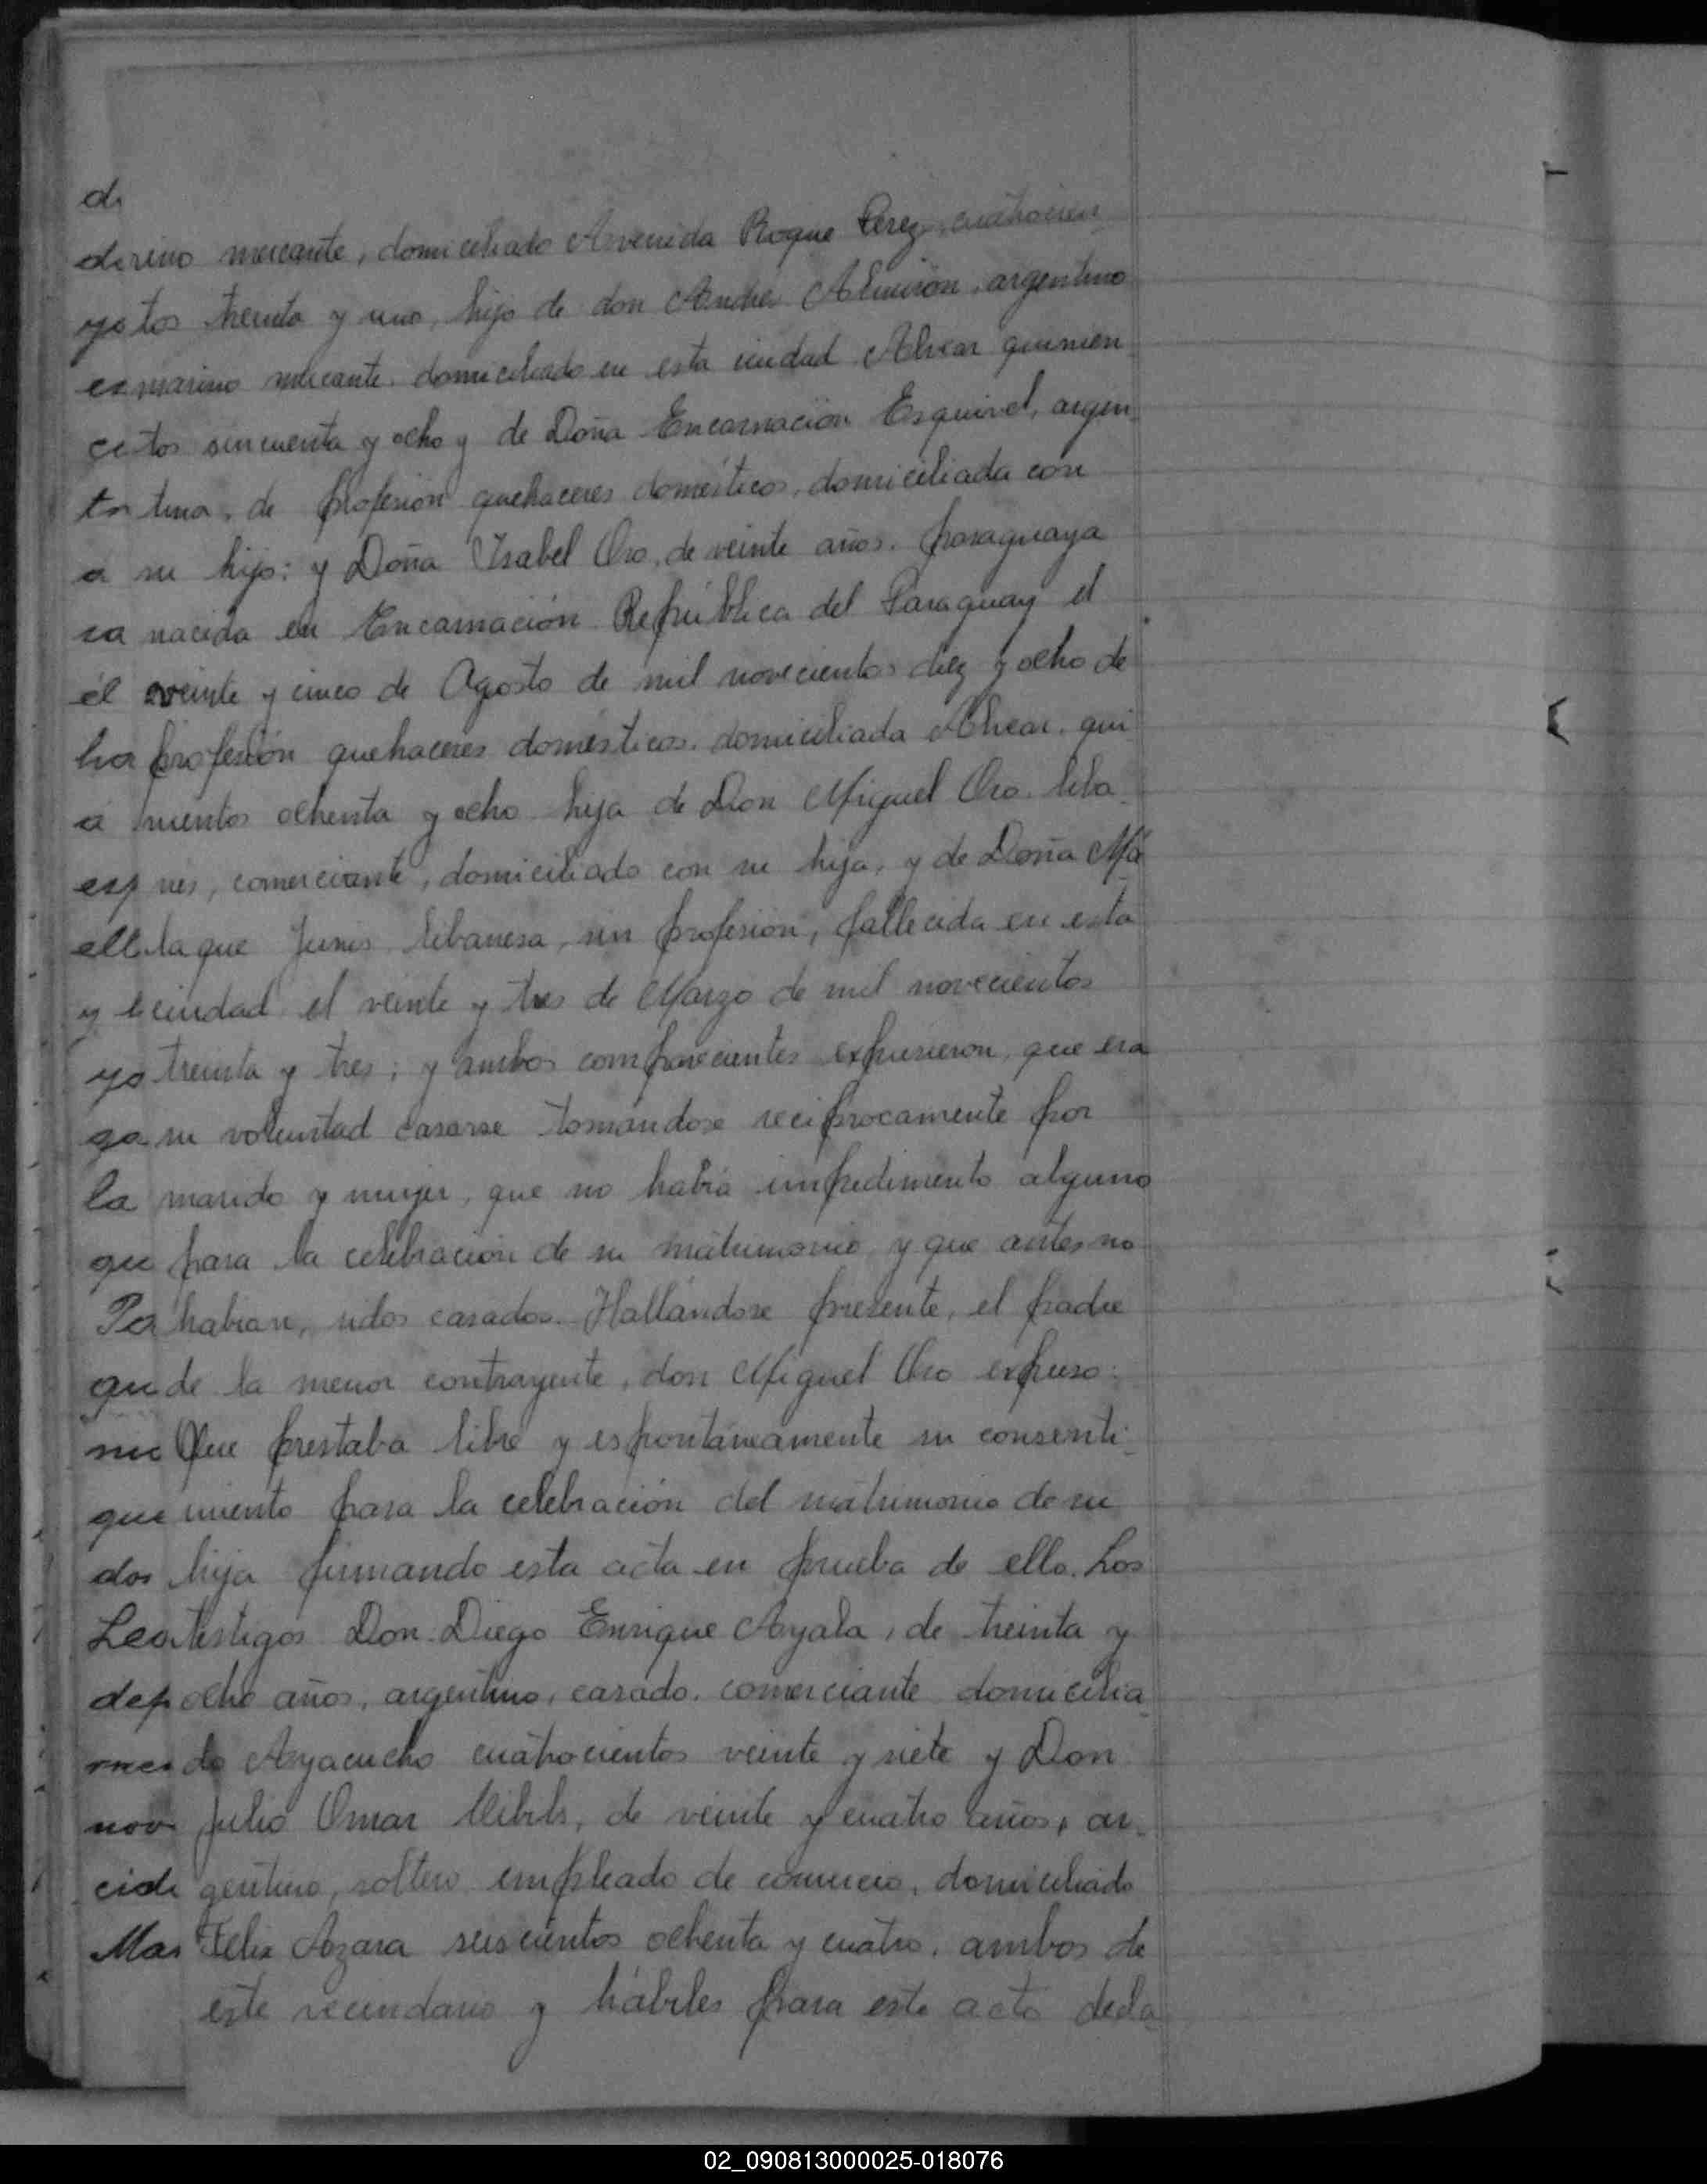 di
di rino mercante, domiciliado Avenida Roque Perez, cuatrocien
ya tos treinta y uno, hijo de don Andrés Almirón, argentino
ex marino mercante, domiciliado en esta ciudad Alvear quinien
ci tos sincuenta y ocho y de Doña Encarnación Esquivel, argen
tn tina, de profesión quehaceres domésticos, domiciliada con
a su hijo: y Doña Isabel Oro, de veinte años, paraguaya
ca nacida en Encarnación República del Paraguay el
él veinte y cinco de Agosto de mil novecientos diez y ocho de
ha profesión quehaceres domésticos, domiciliada Alvear, qui
a nientos ochenta y ocho hija de Don Miguel Oro, liba
esp nes, comerciante, domiciliado con su hija, y de Doña Ma
ell laque Junis libanesa, sin profesión, fallecida en esta
y e ciudad el veinte y tres de Marzo de mil novecientos
yo treinta y tres; y ambos comparecientes expusieron, que era
ga su voluntad casarse tomándose reciprocamente por
la marido y mujer, que no había impedimento alguno
qu para la celebración de su matrimonio y que antes no
Per habian, sidos casados. Hallándose presente, el padre
qu de la menor contrayente, don Miguel Oro expuso:
nu Que prestaba libre y espontáneamente su consenti-
que miento para la celebración del matrimonio de su
dos hija firmando esta acta en prueba de ello. Los
Leo testigos Don Diego Enrique Ayala, de treinta y
dep ocho años, argentino, casado, comerciante domicilia
do Ayacucho cuatrocientos veinte y siete y Don
nov Julio Omar de veinte y cuatro años, ar-
cid gentino, soltero, empleado de comercio, domiciliado
Mar Felix Azara seiscientos ochenta y cuatro, ambos de
este vecindario y hábiles para este acto decla